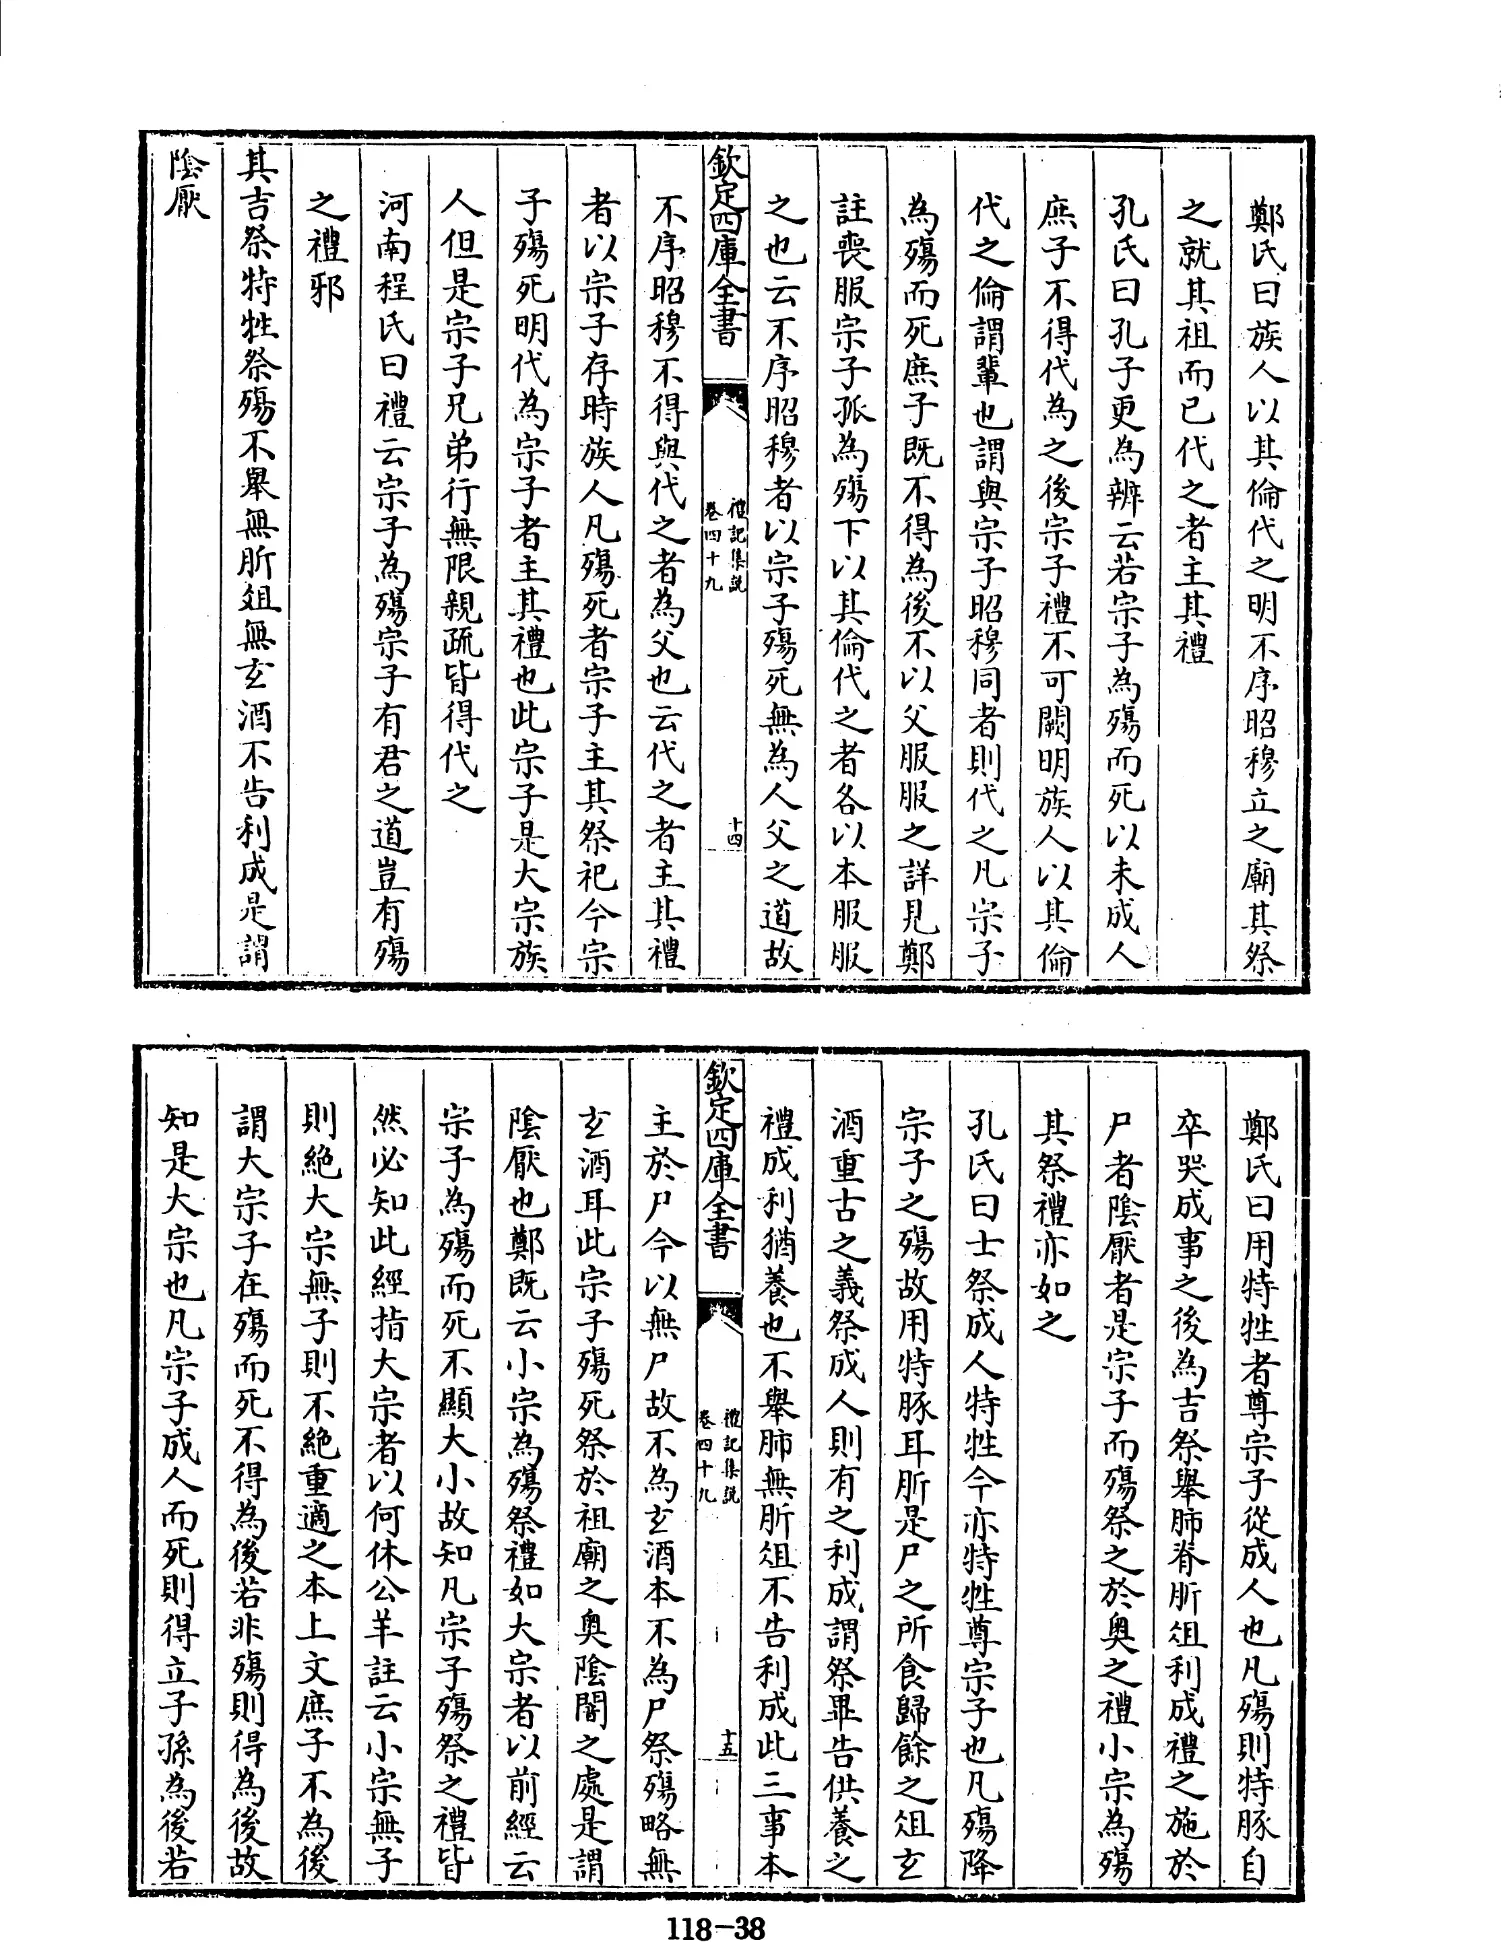 鄭氏曰族人以其倫代之明不序昭穆立之廟其祭
之就其祖而已代之者主其禮
孔氏曰孔子更為辨云若宗子為殤而死以未成人
庶子不得代為之後宗子禮不可闕明族人以其倫
代之倫謂輩也謂與宗子昭穆同者則代之凡宗子
為殤而死庶子既不得為後不以父服服之詳見鄭
註喪服宗子孤為殤下以其倫代之者各以本服服
之也云不序昭穆者以宗子殤死無為人父之道故
欽定四庫全書
禮記集說
卷四十九
十四
不序昭穆不得與代之者為父也云代之者主其禮
者以宗子存時族人凡殤死者宗子主其祭祀今宗
子殤死明代為宗子者主其禮也此宗子是大宗族
人但是宗子兄弟行無限親疏皆得代之
河南程氏曰禮云宗子為殤宗子有君之道豈有殤
之禮邪
其吉祭特牲祭殤不舉無肵俎無玄酒不告利成是謂
陰厭
鄭氏曰用特牲者尊宗子從成人也凡殤則特豚自
卒哭成事之後為吉祭舉肺脊肵俎利成禮之施於
尸者陰厭者是宗子而殤祭之於奧之禮小宗為殤
其祭禮亦如之
孔氏曰士祭成人特牲今亦特牲尊宗子也凡殤降
宗子之殤故用特豚耳肵是尸之所食歸餘之俎玄
酒重古之義祭成人則有之利成謂祭畢告供養之
禮成利猶養也不舉肺無肵俎不告利成此三事本
欽定四庫全書
禮記集說
卷四十九
十五
主於尸今以無尸故不為玄酒本不為尸祭殤略無
玄酒耳此宗子殤死祭於祖廟之奧陰闇之處是謂
陰厭也鄭既云小宗為殤祭禮如大宗者以前經云
宗子為殤而死不顯大小故知凡宗子殤祭之禮皆
然必知此經指大宗者以何休公羊註云小宗無子
則絕大宗無子則不絕重適之本上文庶子不為後
謂大宗子在殤而死不得為後若非殤則得為後故
知是大宗也凡宗子成人而死則得立子孫為後若
118-38